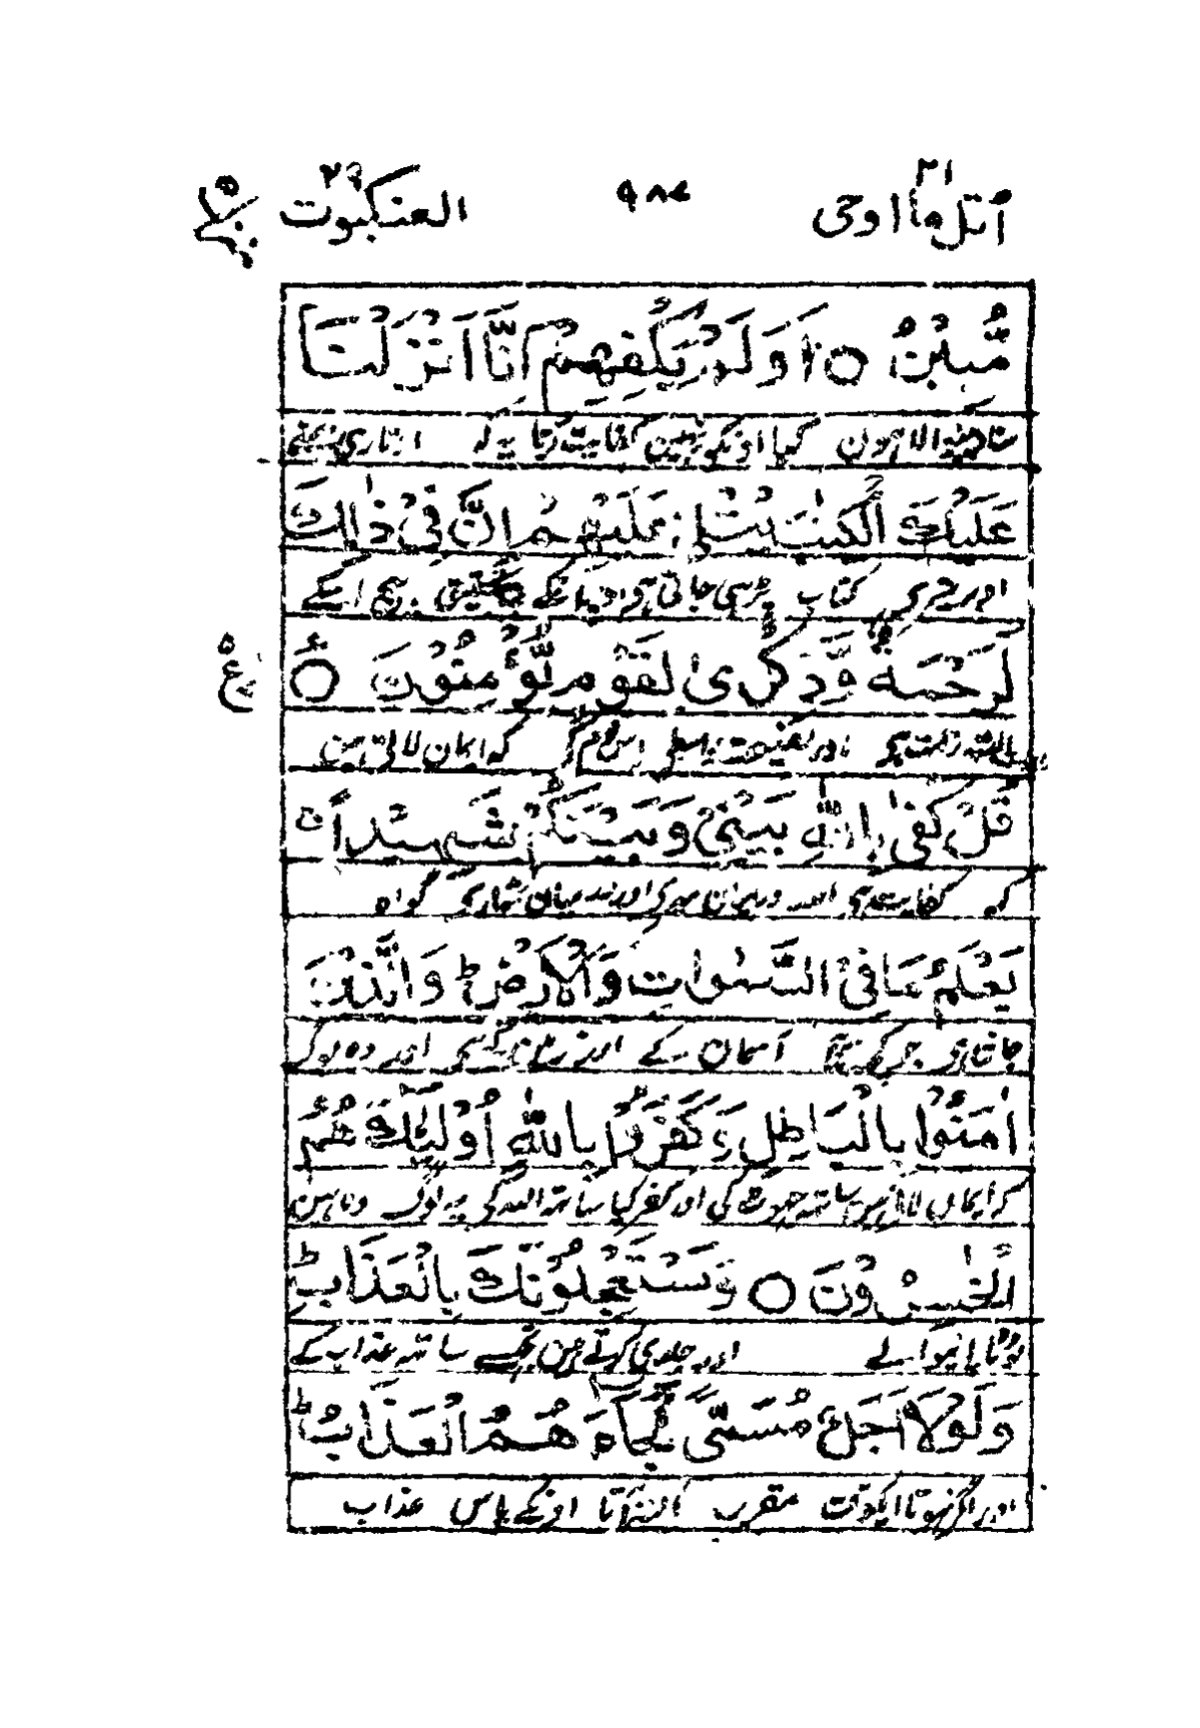 اتل ما اوحی ۲۱
۹۸۷
العنکبوت ۲۹
مُّبِيْنٌ ○ اَوَلَمْ يَكْفِهِمْ اَنَّا اَنْزَلْنَا
کیا اونکو نہین کفایت کرتا یہ کہ اوتاری ہمنے
عَلَيْكَ الْكِتٰبَ يُتْلٰى عَلَيْهِمْ اِنَّ فِيْ ذٰلِكَ
اوپر تیری کتاب پڑہی جاتی ہی اوپر اونکے تحقیق بیچ اسکے
لَرَحْمَةً وَّذِكْرٰى لِقَوْمٍ يُّؤْمِنُوْنَ ○
البتہ رحمت ہی اور نصیحت واسطی اس قوم کے کہ ایمان لاتی ہین
ع
قُلْ كَفٰى بِاللّٰهِ بَيْنِيْ وَبَيْنَكُمْ شَهِيْدًا
کہہ کفایت ہی اللہ درمیان میری اور درمیان تمہاری گواہ
يَعْلَمُ مَا فِي السَّمٰوَاتِ وَالْاَرْضِ ط وَالَّذِيْنَ
جانتا ہی جو کچہ بیچ آسمان کے اور زمین کے ہی اور وہ لوگ
اٰمَنُوْا بِالْبَاطِلِ وَكَفَرُوْا بِاللّٰهِ اُولٰٓئِكَ هُمُ
کہ ایمان لائی ہین ساتہ جہوٹ کی اور کفر کیا ساتہ اللہ کی یہ لوگ وہ ہین
الْخٰسِرُوْنَ ○ وَيَسْتَعْجِلُوْنَكَ بِالْعَذَابِ ط
ٹوٹا پانیوالے اور جلدی کرتے ہین تجہسے ساتہ عذاب کے
وَلَوْلَا اَجَلٌ مُّسَمًّى لَّجَآءَ هُمُ الْعَذَابُ ط
اور اگر نہوتا ایکوقت مقرر البتہ آتا اونکے پاس عذاب